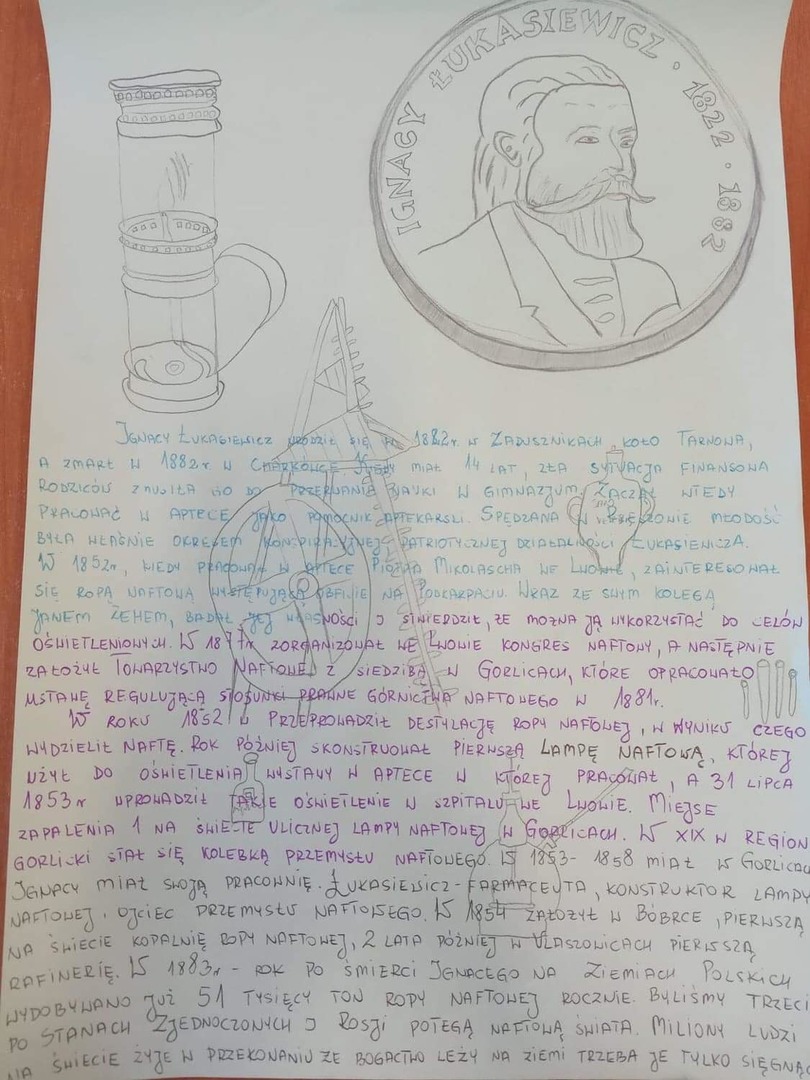 IGNACY ŁUKASIEWICZ · 1822 · 1882
IGNACY ŁUKASIEWICZ URODZIŁ SIĘ W 1882r. W ZADUSZNIKACH KOŁO TARNOWA,
A ZMARŁ W 1882r W CHORKÓWCE. KIEDY MIAŁ 14 LAT, ZŁA SYTUACJA FINANSOWA
RODZICÓW ZMUSIŁA GO DO PRZERWANIA NAUKI W GIMNAZJUM. ZACZĄŁ WTEDY
PRACOWAĆ W APTECE JAKO POMOCNIK APTEKARSKI. SPĘDZANA W RZESZOWIE MŁODOŚĆ
BYŁA WŁAŚNIE OKRESEM KONSPIRACYJNEJ PATRIOTYCZNEJ DZIAŁALNOŚCI ŁUKASIEWICZA.
W 1852r, KIEDY PRACOWAŁ W APTECE PIOTRA MIKOLASCHA WE LWOWIE, ZAINTERESOWAŁ
SIĘ ROPĄ NAFTOWĄ WYSTĘPUJĄCĄ OBFICIE NA PODKARPACIU. WRAZ ZE SWYM KOLEGĄ
JANEM ZEHEM, BADAŁ JEJ WŁASNOŚCI I STWIERDZIŁ, ŻE MOŻNA JĄ WYKORZYSTAĆ DO CELÓW
OŚWIETLENIOWYCH. W 1877r ZORGANIZOWAŁ WE LWOWIE KONGRES NAFTOWY, A NASTĘPNIE
ZAŁOŻYŁ TOWARZYSTWO NAFTOWE Z SIEDZIBĄ W GORLICACH, KTÓRE OPRACOWAŁO
USTAWĘ REGULUJĄCĄ STOSUNKI PRAWNE GÓRNICTWA NAFTOWEGO W 1881r.
W ROKU 1852 PRZEPROWADZIŁ DESTYLACJĘ ROPY NAFTOWEJ, W WYNIKU CZEGO
WYDZIELIŁ NAFTĘ. ROK PÓŹNIEJ SKONSTRUOWAŁ PIERWSZĄ LAMPĘ NAFTOWĄ, KTÓREJ
UŻYŁ DO OŚWIETLENIA WYSTAWY W APTECE W KTÓREJ PRACOWAŁ, A 31 LIPCA
1853r WPROWADZIŁ TAKIE OŚWIETLENIE W SZPITALU WE LWOWIE. MIEJSE
ZAPALENIA 1 NA ŚWIECIE ULICZNEJ LAMPY NAFTOWEJ W GORLICACH. W XIX W REGION
GORLICKI STAŁ SIĘ KOLEBKĄ PRZEMYSŁU NAFTOWEGO. W 1853-1858 MIAŁ W GORLICACH
IGNACY MIAŁ SWOJĄ PRACOWNIĘ. ŁUKASIEWICZ - FARMACEUTA, KONSTRUKTOR LAMPY
NAFTOWEJ, OJCIEC PRZEMYSŁU NAFTOWEGO. W 1854 ZAŁOŻYŁ W BÓBRCE, PIERWSZĄ
NA ŚWIECIE KOPALNIĘ ROPY NAFTOWEJ, 2 LATA PÓŹNIEJ W ULASZOWICACH PIERWSZĄ
RAFINERIĘ. W 1883r - ROK PO ŚMIERCI IGNACEGO NA ZIEMIACH POLSKICH
WYDOBYWANO JUŻ 51 TYSIĘCY TON ROPY NAFTOWEJ ROCZNIE. BYLIŚMY TRZECI
PO STANACH ZJEDNOCZONYCH I ROSJI POTĘGĄ NAFTOWĄ ŚWIATA. MILIONY LUDZI
NA ŚWIECIE ŻYJE W PRZEKONANIU ŻE BOGACTWO LEŻY NA ZIEMI TRZEBA JE TYLKO